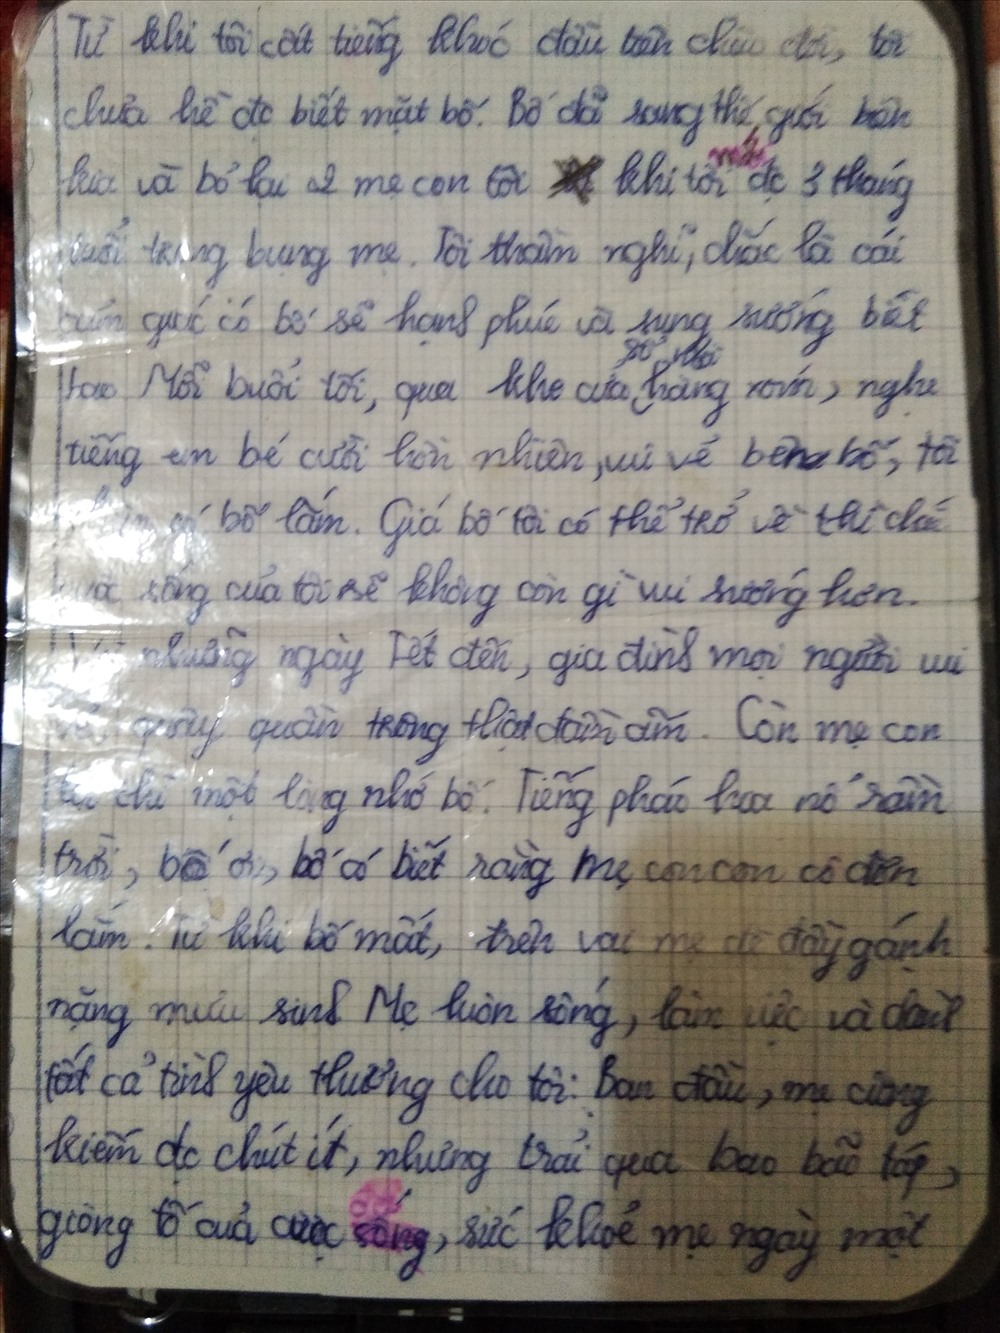 Từ khi tôi cất tiếng khóc đầu tiên chào đời, tôi
chưa hề đc biết mặt bố. Bố đã sang thế giới bên
kia và bỏ lại 2 mẹ con tôi khi tôi mới đc 3 tháng
tuổi trong bụng mẹ. Tôi thầm nghĩ, chắc là cái
cảm giác có bố sẽ hạnh phúc và sung sướng biết
bao Mỗi buổi tối, qua khe cửa sổ nhà hàng xóm, nghe
tiếng em bé cười hồn nhiên, vui vẻ bên bố, tôi
bố lắm. Giá bố tôi có thể trở về thì chắc
sống của tôi sẽ không còn gì vui sướng hơn.
những ngày Tết đến, gia đình mọi người vui
quây quần trông thật đầm ấm. Còn mẹ con
tôi chỉ một lòng nhớ bố. Tiếng pháo hoa nổ rầm
trời, bố ơi, bố có biết rằng mẹ con con cô đơn
lắm. Từ khi bố mất, trên vai mẹ đè đầy gánh
nặng mưu sinh Mẹ luôn sống, làm việc và dành
tất cả tình yêu thương cho tôi. Ban đầu, mẹ cũng
kiếm đc chút ít, nhưng trải qua bao bão táp,
giông tố cuả cuộc sống, sức khoẻ mẹ ngày một